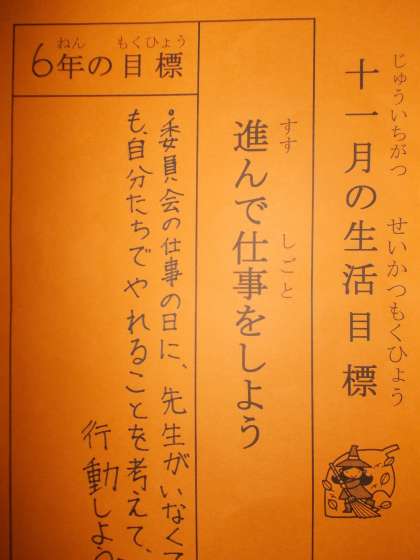 じゅういちがつ せいかつもくひょう
十一月の生活目標
すす しごと
進んで仕事をしよう
ねん もくひょう
6年の目標
・委員会の仕事の日に、先生がいなくて
も、自分たちでやれることを考えて、
行動しよう